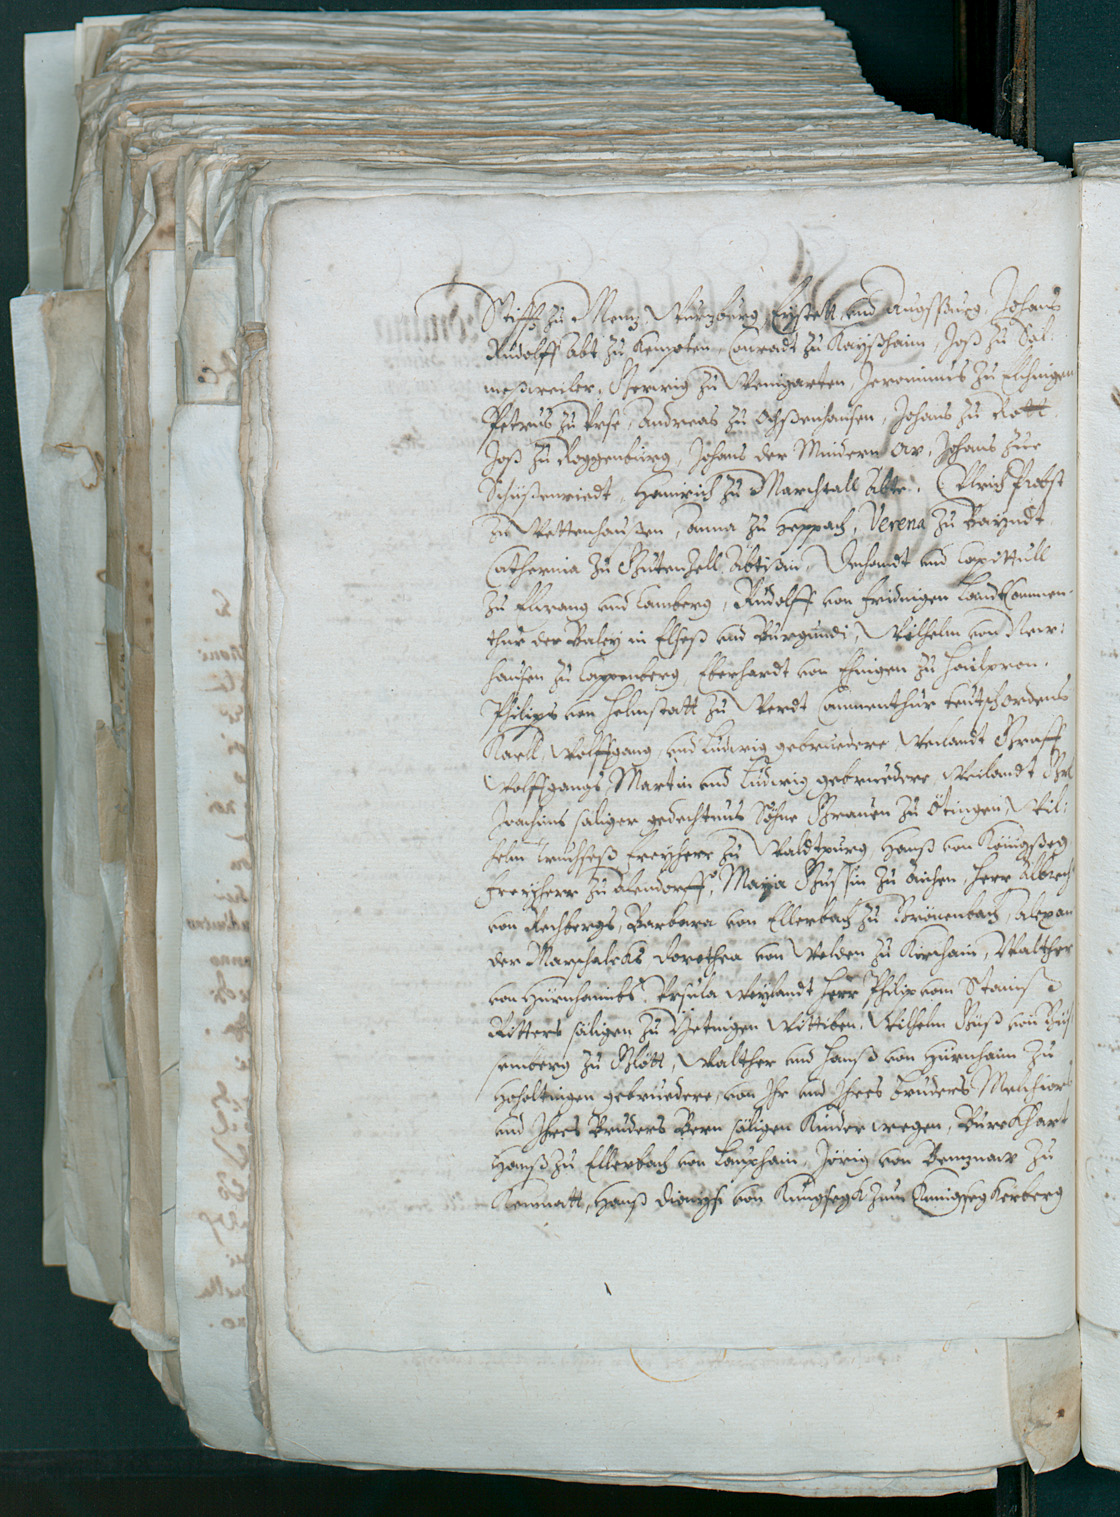 Stifft zu Mentz, Wurzburg, Eystett und Augspurg, Johans
Rudolff Abt zu Kempten, Conradt zu Kayßhaim, Joß zu Sal:
meßweiler, Gerwig zu Weingarten, Jeronimus zu Elchingen
Petrus zu Yrse, Andreas zu Ochßenhausen, Johans zu Rott
Joß zu Roggenburg, Johans der Mindern Aw, Johans zue
Schüßenriedt, Hainrich zu Marchtall Äbte. Ulrich Probst
zu Wettenhaußen, Anna zu Heppach, Verena zu Bayndt
Catherina zu Gutenzell Abtißin, Dechandt und Capittull
zu Elwang und Camberg, Rudolff von Fridingen Landt Commen-
thur der Baley in Elseß und Burgundi, Wilhelm von New:
hausen zu Cappenberg, Eberhardt von Ehingen zu Hailpron.
Philips von Helmstatt zu Werdt Commenthur teutsch ordens
Karll, Wolffgang, und Ludwig gebruedere, Weilandt Graff
Wolffgangs, Martin und Ludwig gebruedere, Weilandt
Joachims säliger gedechtnus Söhne Graven zu Ötingen, Wil:
helm Truchseß freyherr zu Waldtpurg, Hanß von Königßeg
freyherr zu Alendorff, Maija Gussin zu Aichen, Herr Albrech
von Rechbergs, Barbara von Ellerbach zu Brönenbach, Alexan
der Marschalcks Dorothea von Welden zu Kirchaim, Walther
von Hürnhaimbs, Ursula Weylandt Herr Philips vom Stain
Ritters säligen zu Jetingen Wittiben. Wilhelm Guß von Guß
enberg zu Glött, Walther und Hanß von Hürnhaim zu
Hohaltingen gebruedere, von Ihr und Ihres Bruders Melchiors
und Ihres Bruders Bern säligen Kinder wegen, Burckhart
Hanß zu Ellerbach von Lauphaim, Jörig von Bemznaw zu
Kemnatt, Hanß Dionysi von Kungsegk zum Kungsegkerberg